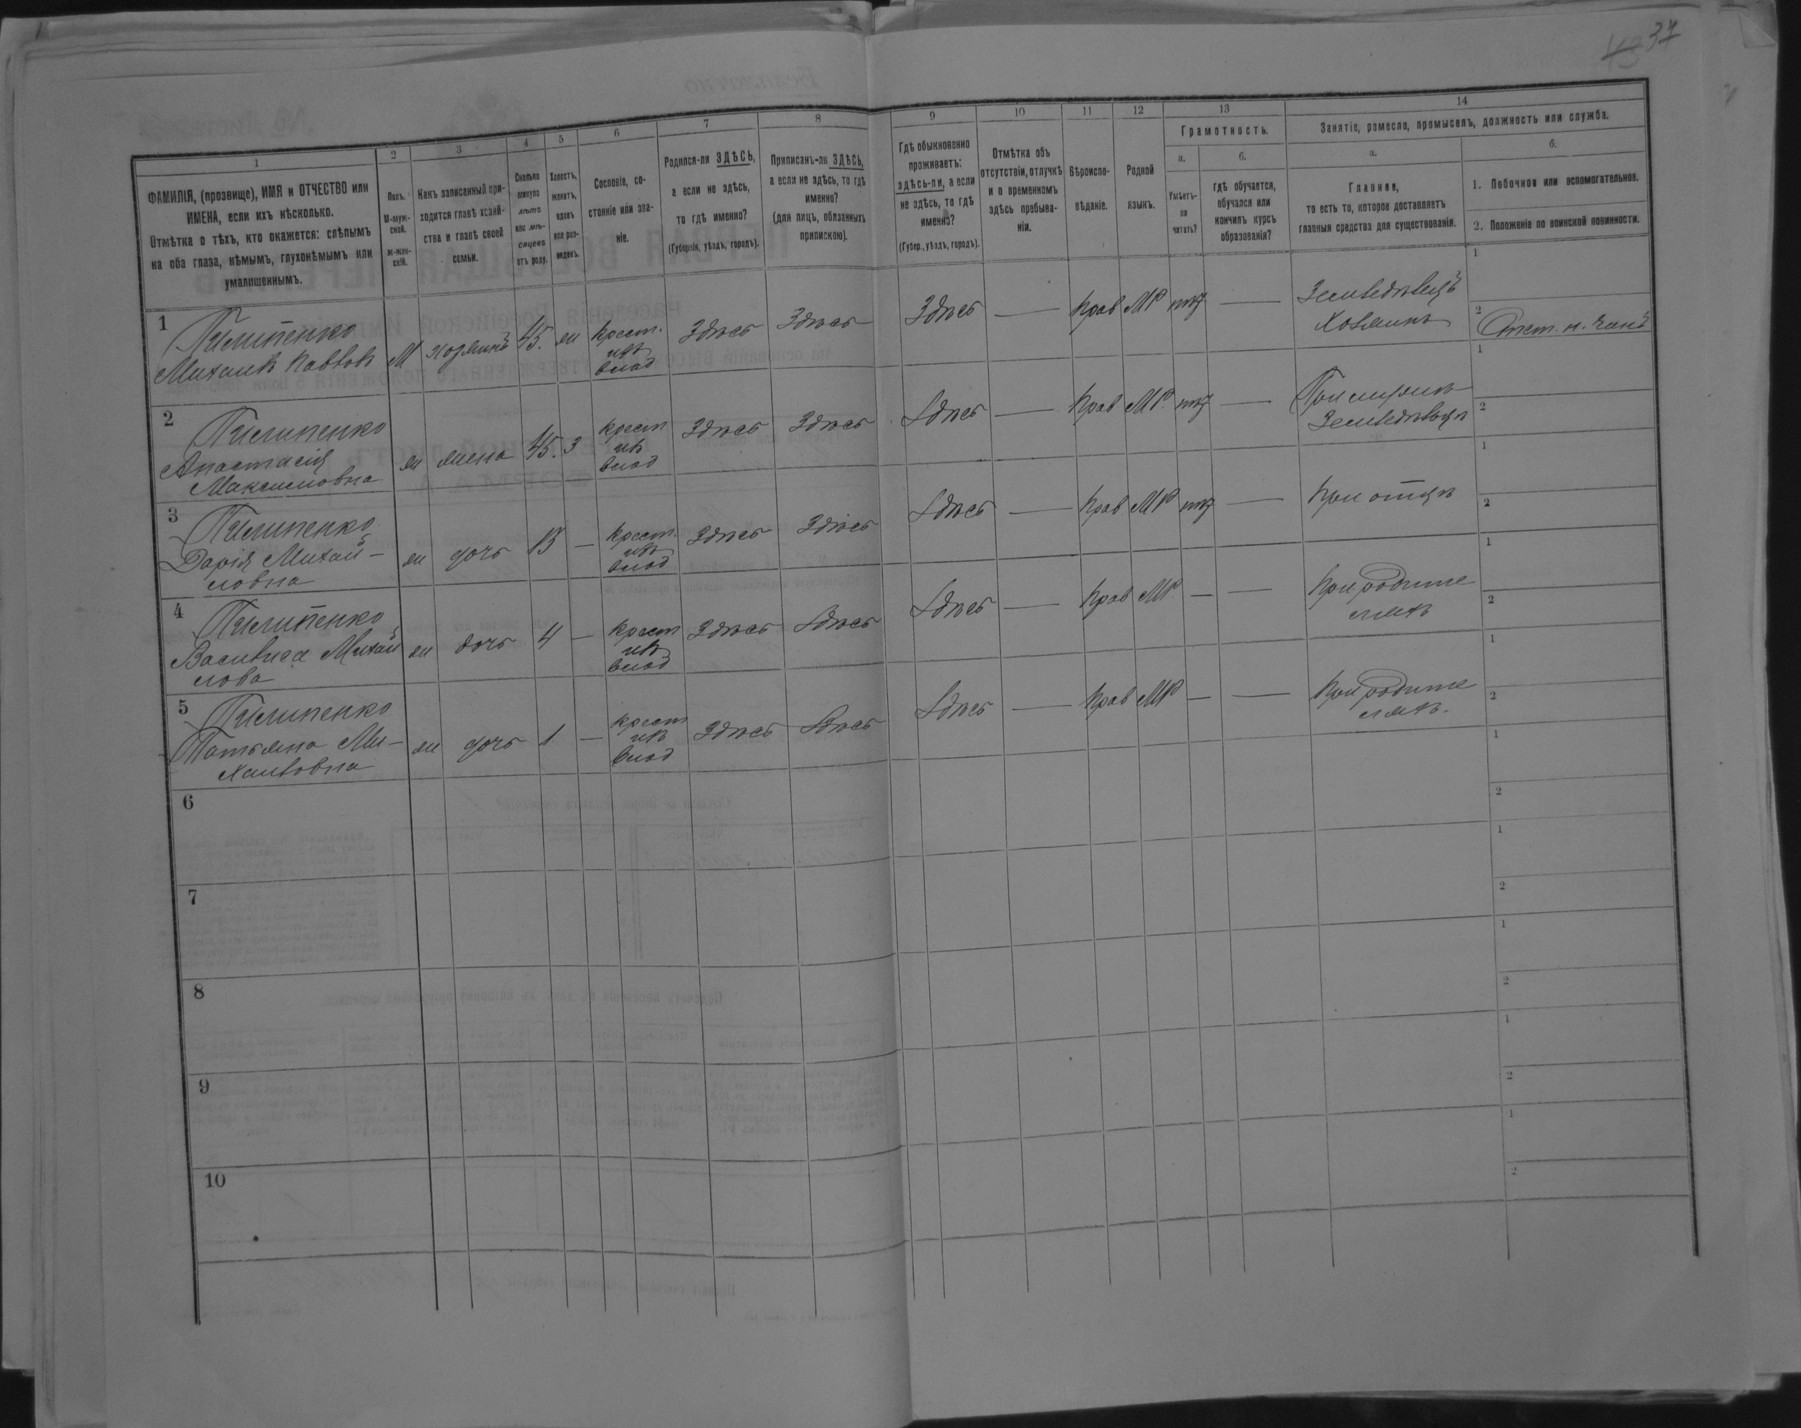 43 37
1
2
3
4
5
6
7
8
9
10
11
12
13
14
ФАМИЛІЯ, (прозвище), ИМЯ и ОТЧЕСТВО или
ИМЕНА, если ихъ нѣсколько.
Отмѣтка о тѣхъ, кто окажется: слѣпымъ
на оба глаза, нѣмымъ, глухонѣмымъ или
умалишеннымъ.
Полъ.
М-муж-
ской.
Ж-жен-
скій.
Какъ записанный при-
ходится главѣ хозяй-
ства и главѣ своей
семьи.
Сколько
минуло
лѣтъ
или мѣ-
сяцевъ
отъ роду.
Холостъ,
женатъ,
вдовъ
или раз-
веденъ.
Сословіе, со-
стояніе или зва-
ніе.
Родился-ли ЗДѢСЬ,
а если не здѣсь,
то гдѣ именно?
(Губернія, уѣздъ, городъ).
Приписанъ-ли ЗДѢСЬ,
а если не здѣсь, то гдѣ
именно?
(для лицъ, обязанныхъ
припискою).
Гдѣ обыкновенно
проживаетъ:
здѣсь-ли, а если
не здѣсь, то гдѣ
именно?
(Губер., уѣздъ, городъ).
Отмѣтка объ
отсутствіи, отлучкѣ
и о временномъ
здѣсь пребыва-
ніи.
Вѣроиспо-
вѣданіе.
Родной
языкъ.
Грамотность.
а.
Умѣетъ-
ли
читать?
б.
гдѣ обучается,
обучался или
кончилъ курсъ
образованія?
Занятіе, ремесло, промыселъ, должность или служба.
а.
Главное,
то есть то, которое доставляетъ
главныя средства для существованія.
б.
1. Побочное или вспомогательное.
2. Положеніе по воинской повинности.
1 Пилипенко
Михаилъ Павловъ
М хозяинъ 45. ж Крест. Здѣсь Здѣсь Здѣсь — Прав МР —
Земледѣлецъ
Хозяинъ
1
2
2 Пилипенко
Анастасія
Максимовна
ж жена 45. З крест Здѣсь Здѣсь Здѣсь — Прав МР —
При мужѣ
Земледѣлецъ
1
2
3 Пилипенко
Дарія Михай-
ловна
ж дочь 13 — крест. Здѣсь Здѣсь Здѣсь — Прав МР —
При отцѣ
1
2
4 Пилипенко
Василиса Михай
лова
ж дочь 4 — крест Здѣсь Здѣсь Здѣсь — Прав МР — —
При родите
ляхъ
1
2
5 Пилипенко
Татьяна Ми-
хаиловна
ж дочь 1 — крест Здѣсь Здѣсь Здѣсь — Прав МР — —
При родите
ляхъ.
1
2
6
1
2
7
1
2
8
1
2
9
1
2
10
1
2